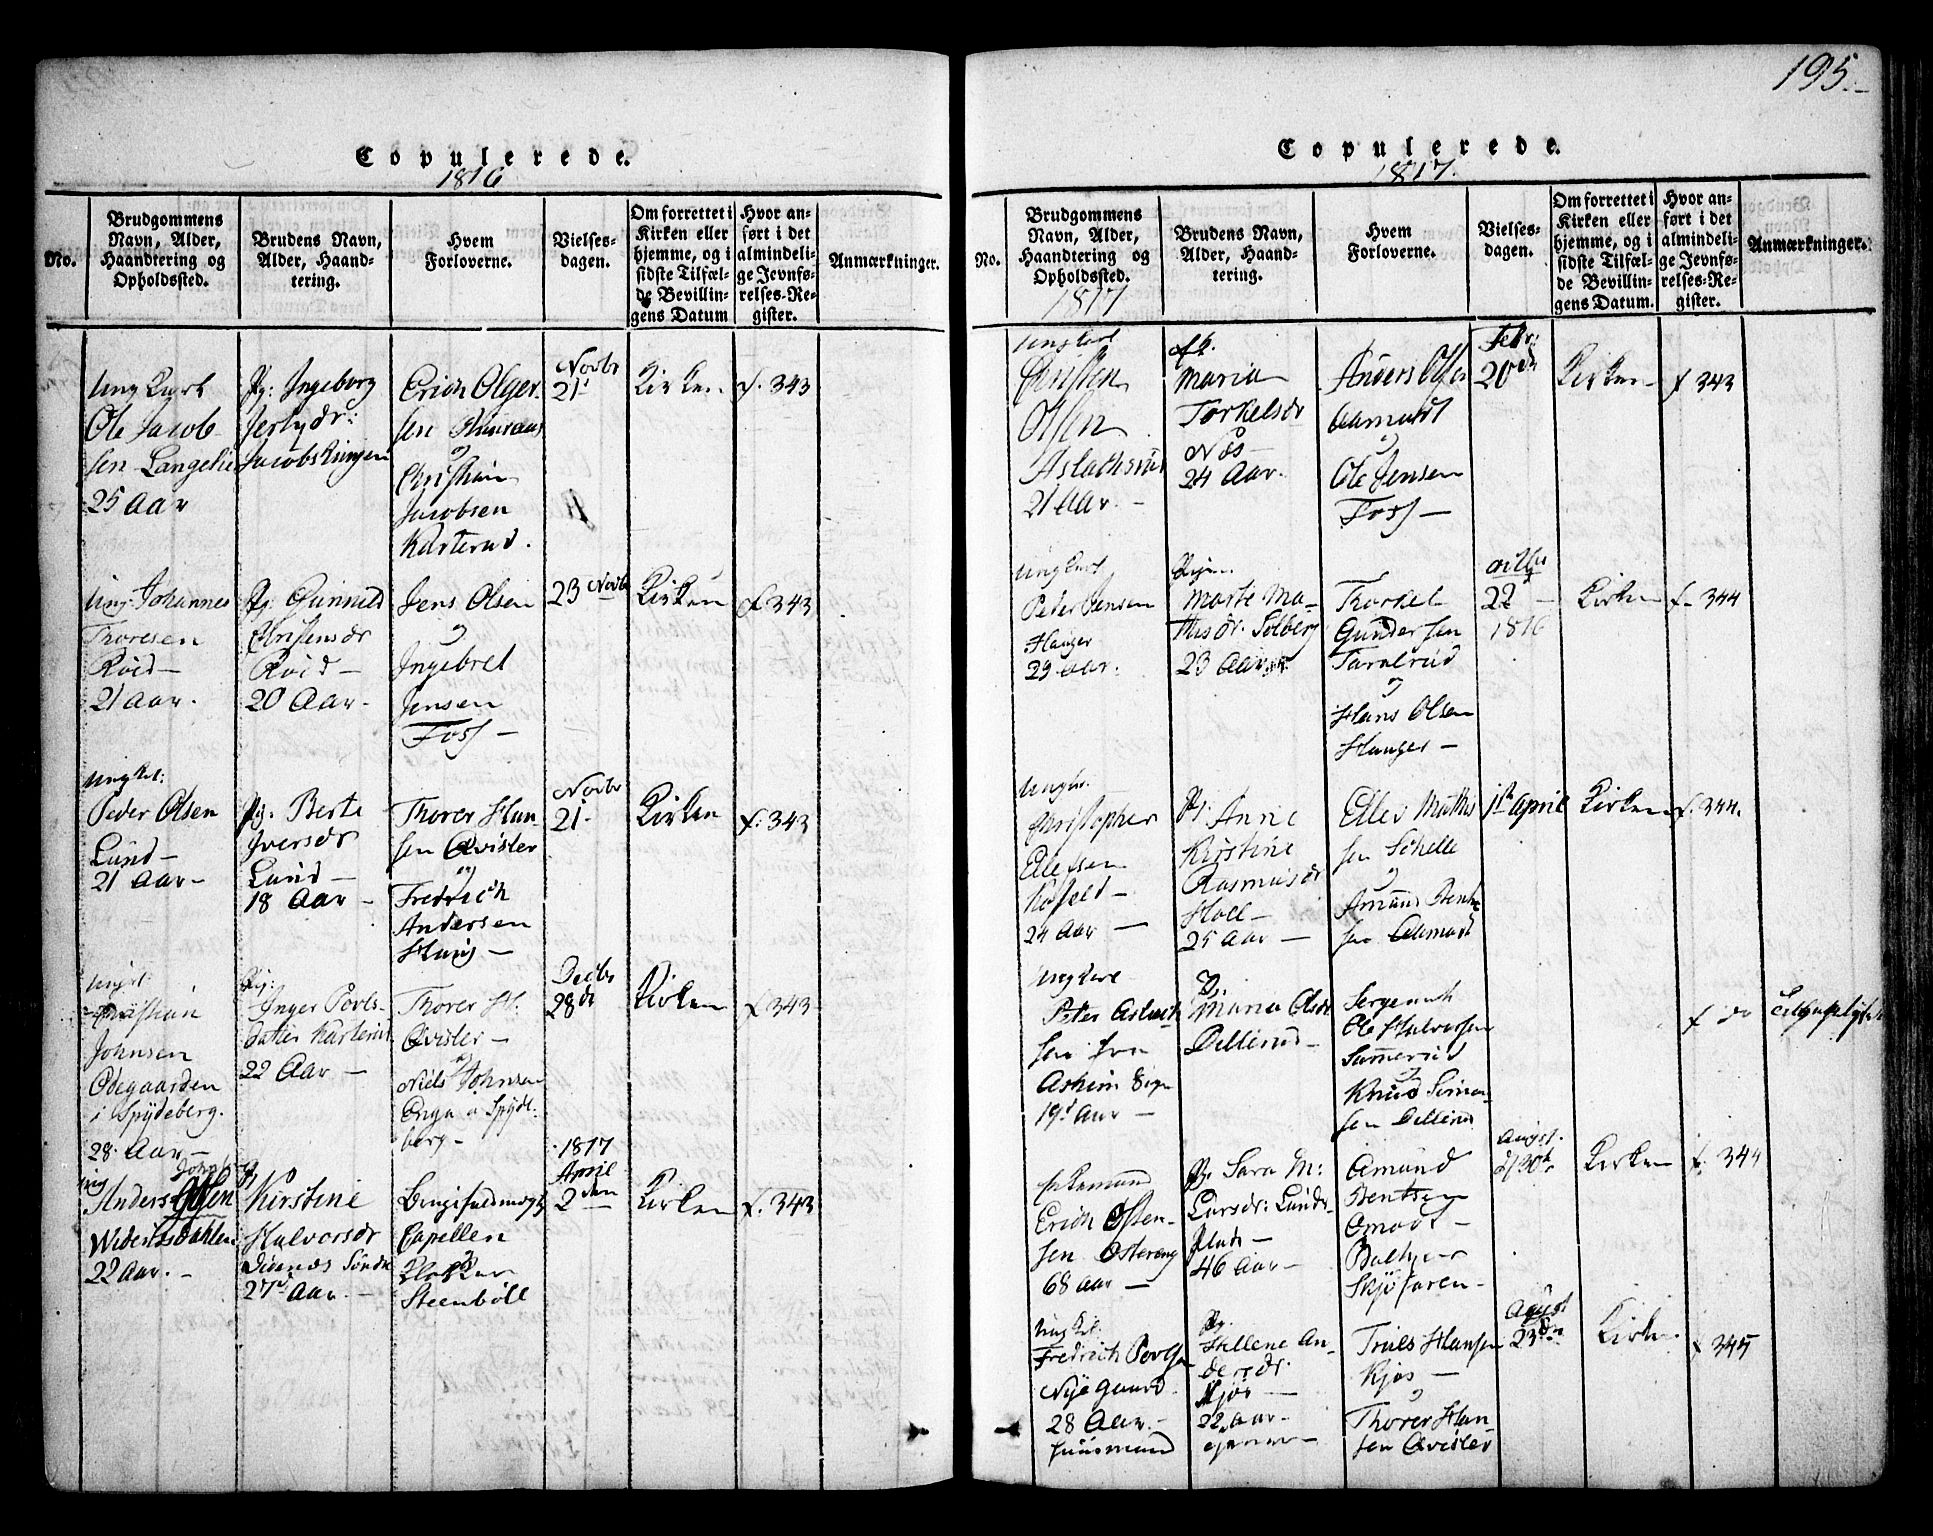 195.
Copulerede.
1816
No.
Brudgommens
Navn, Alder,
Haandtering og
Opholdssted.
Brudens Navn,
Alder, Haand-
tering.
Hvem
Forloverne.
Vielses-
dagen.
Om forrettet i
Kirken eller
hjemme, og i
sidste Tilfæl-
de Bevillin-
gens Datum
Hvor an-
ført i det
almindeli-
ge Jevnfø-
relses-Re-
gister.
Anmærkninger.
Ung Karl
Ole Jacob
sen Langelie
25 Aar
Pg: Ingeborg
Jacobs
Erich Olger
sen
og
Christian
Jacobsen
Karterud.
Novbr
21
Kirken
f. 343
Ung. Johannes
Thoresen
Röid
21 Aar.
Pg. Gunnild
Christensdr
Röid
20 Aar.
Jens Olsen
og
Ingebret
Jensen
Foss
23 Novbr
Kirken
f. 343
Ungkl:
Peder Olsen
Lund
21 Aar
Pg. Berte
Iversdr
Lund
18 Aar
Thorer Han
sen Qvisler
og
Fredrich
Andersen
Haug
Novbr
21
Kirken
f. 343
Ungk:
Christian
Johnsen
Ödegaarden
i Spydeberg.
28. Aar
Pig:
Inger Povls
Datter Karterud
22 Aar
Thorer H.
Qvisler
og
Niels Johnsen
Enga i Spyde
berg
Decbr
28de
Kirken
f. 343
Ung
Anders
22 Aar.
Pg
Kirstine
Halvorsdr
27 Aar.
Capellen
og
Steenböll
1817
April
2den
Kirken
f. 343
Copulerede.
1817.
No.
Brudgommens
Navn, Alder,
Haandtering og
Opholdssted.
1817
Brudens Navn,
Alder, Haand-
tering.
Hvem
Forloverne.
Vielses-
dagen.
Om forrettet i
Kirken eller
hjemme, og i
sidste Tilfæl-
de Bevillin-
gens Datum.
Hvor an-
ført i det
almindeli-
ge Jevnfø-
relses-Re-
gister.
Anmærkninger.
Ungkarl
Christen
Olsen
21 Aar.
Maria
Torkelsdr
Näs
24 Aar.
Anders Olsen
Aamodt
og
Ole Jensen
Foss
Febr:
20de
Kirken
f 343
Ungkarl
Peter Jensen
Hauger
29 Aar.
Pigen
Marte Ma-
thisdr. Solberg
23 Aar
Thorkel
Gundersen
Taralrud
og
Hans Olsen
Hauger
22
1816
Kirken
f. 344
Ungkr.
Christopher
Ellefsen
24 Aar
Pg. Anne
Kirstine
Rasmusdr
Holl
25 Aar
Ellef Mathis
sen Schelle
og
Amund Bent
sen Aamodt
1te April
Kirken
f. 344.
Ungkarl
Peter Aslach
sen fra
Askim Sogn
19 Aar
Pg.
Maria Olsdr
Dillerud
Sergeant
Ole Halvorsen
og
Knud Simon
sen Dillerud
f do
Enkemand
Erich Osten-
sen Östereng
68 Aar
Pg. Sara M:
Larsdr: Lunds
Plads
46 Aar
Amund
Bentsen
Omodt
Baltzer
Skjöfaren
August.
d/30te
Kirken
f. 344
Ung Kl.
Fredrich Povlsen
Nyegaard
28 Aar
Huusmand
Pg.
Hellene An-
dersdr
Kjös
22 Aar
Truls Hansen
Kjös
og
Thorer Han
sen Qvisler
August
23de
Kirken
f 345